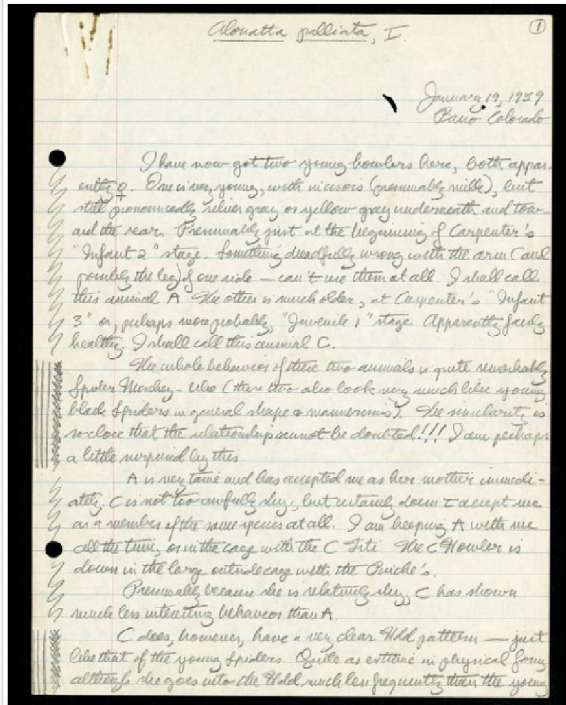 Alouatta palliata, I.
1
January 19, 1959
Barro Colorado
I have now got two young howlers here, both appar-
ently ♀. One is very young, with incisors (presumably milk), but
still pronouncedly silver gray or yellow gray underneath and tow-
ard the rear. Presumably just at the beginning of Carpenter's
"Infant 2" stage. Something dreadfully wrong with the arm (and
possibly the leg) of one side — can't use them at all. I shall call
this animal A. The other is much older, at Carpenter's "Infant
3" or, perhaps more probably, "Juvenile 1" stage. Apparently fairly
healthy. I shall call this animal C.
The whole behavior of these two animals is quite remarkably
Spider Monkey-like (these two also look very much like young
black Spiders in general shape & mannerisms). The similarity is
so close that the relationship cannot be doubted!!! I am perhaps
a little surprised by this.
A is very tame and has accepted me as her mother immedi-
ately. C is not too awfully shy, but certainly doesn't accept me
as a member of the same species at all. I am keeping A with me
all the time, or in the cage with the C Titi. The C Howler is
down in the large outside cage with the
Presumably because she is relatively shy, C has shown
much less interesting behavior than A.
C does, however, have a very clear Hold pattern — just
like that of the young Spiders. Quite as extreme in physical form,
although she goes into the Hold much less frequently than the young